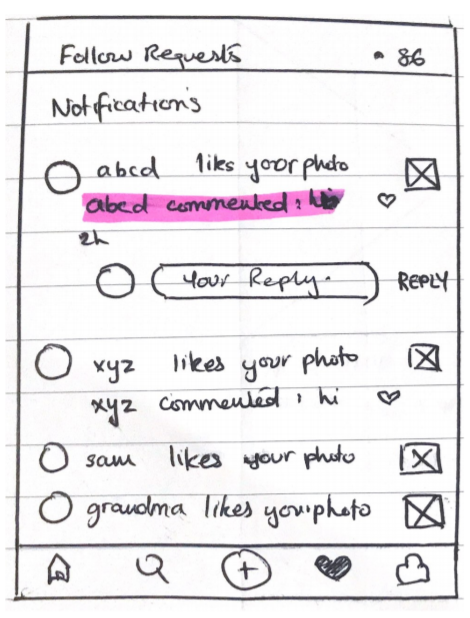 Follow Requests • 86
Notifications
abcd likes your photo
abcd commented : hi
2h
Your Reply. REPLY
xyz likes your photo
xyz commented : hi
sam likes your photo
grandma likes your photo